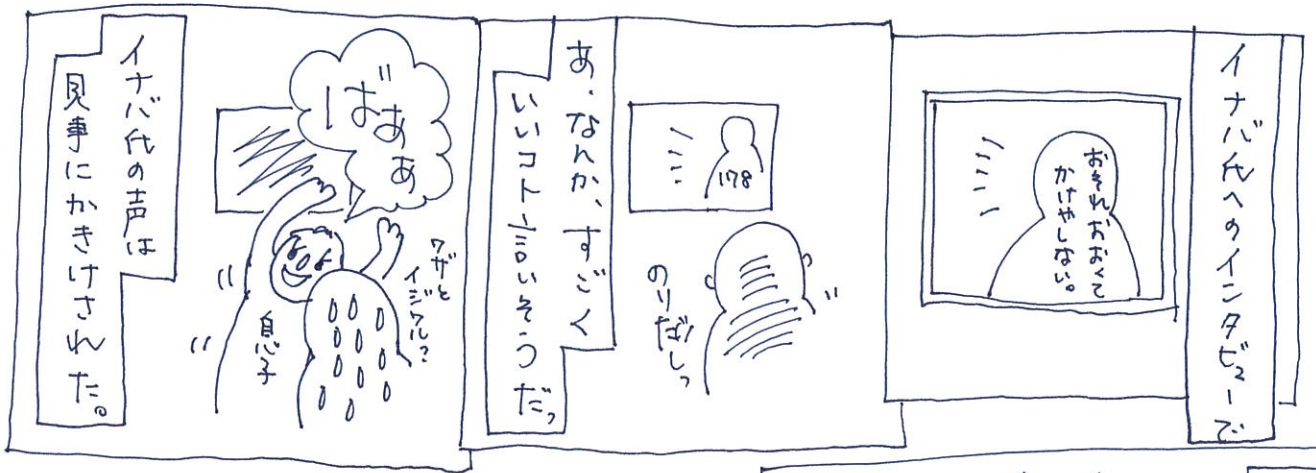 イナバ氏へのインタビューで
おそれおおくて
かけやしない。
あ、なんか、すごく
いいコト言いそうだっ
178
のりだしっ
ばあぁ
ワザと
イジワル?
息子
イナバ氏の声は
見事にかきけされた。